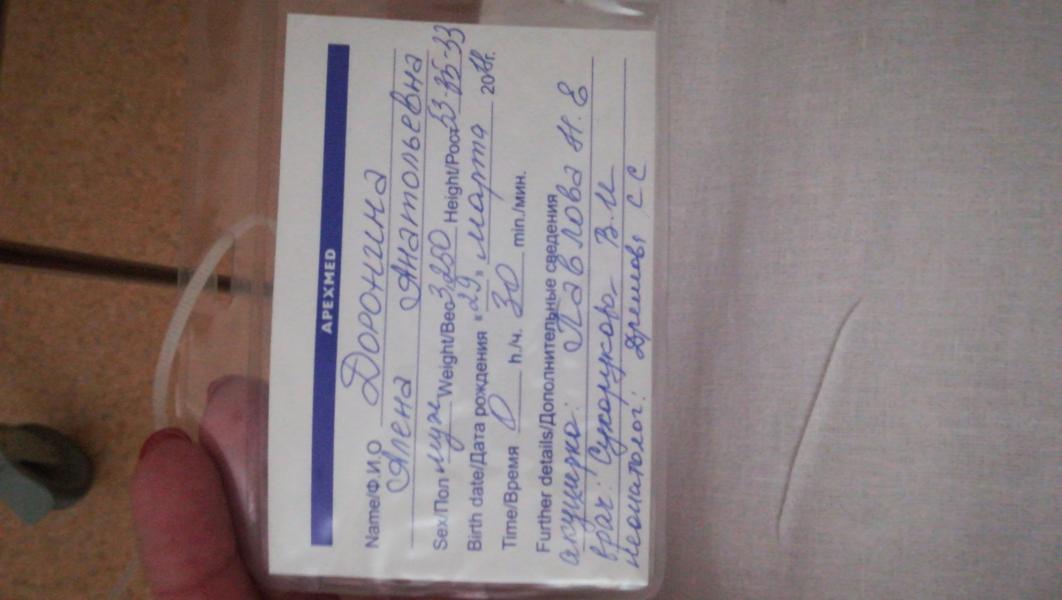 APEXMED
Name/Ф.И.О Доронина
Алена Анатольевна
Sex/Пол муж Weight/Вес 3,250 Height/Рост 53-35-33
Birth date/Дата рождения «29» марта 20 г.
Time/Время 0 h./ч. 30 min./мин.
Further details/Дополнительные сведения
акушерка: Павлова Н.Е
врач: В.И
неонатолог: СС